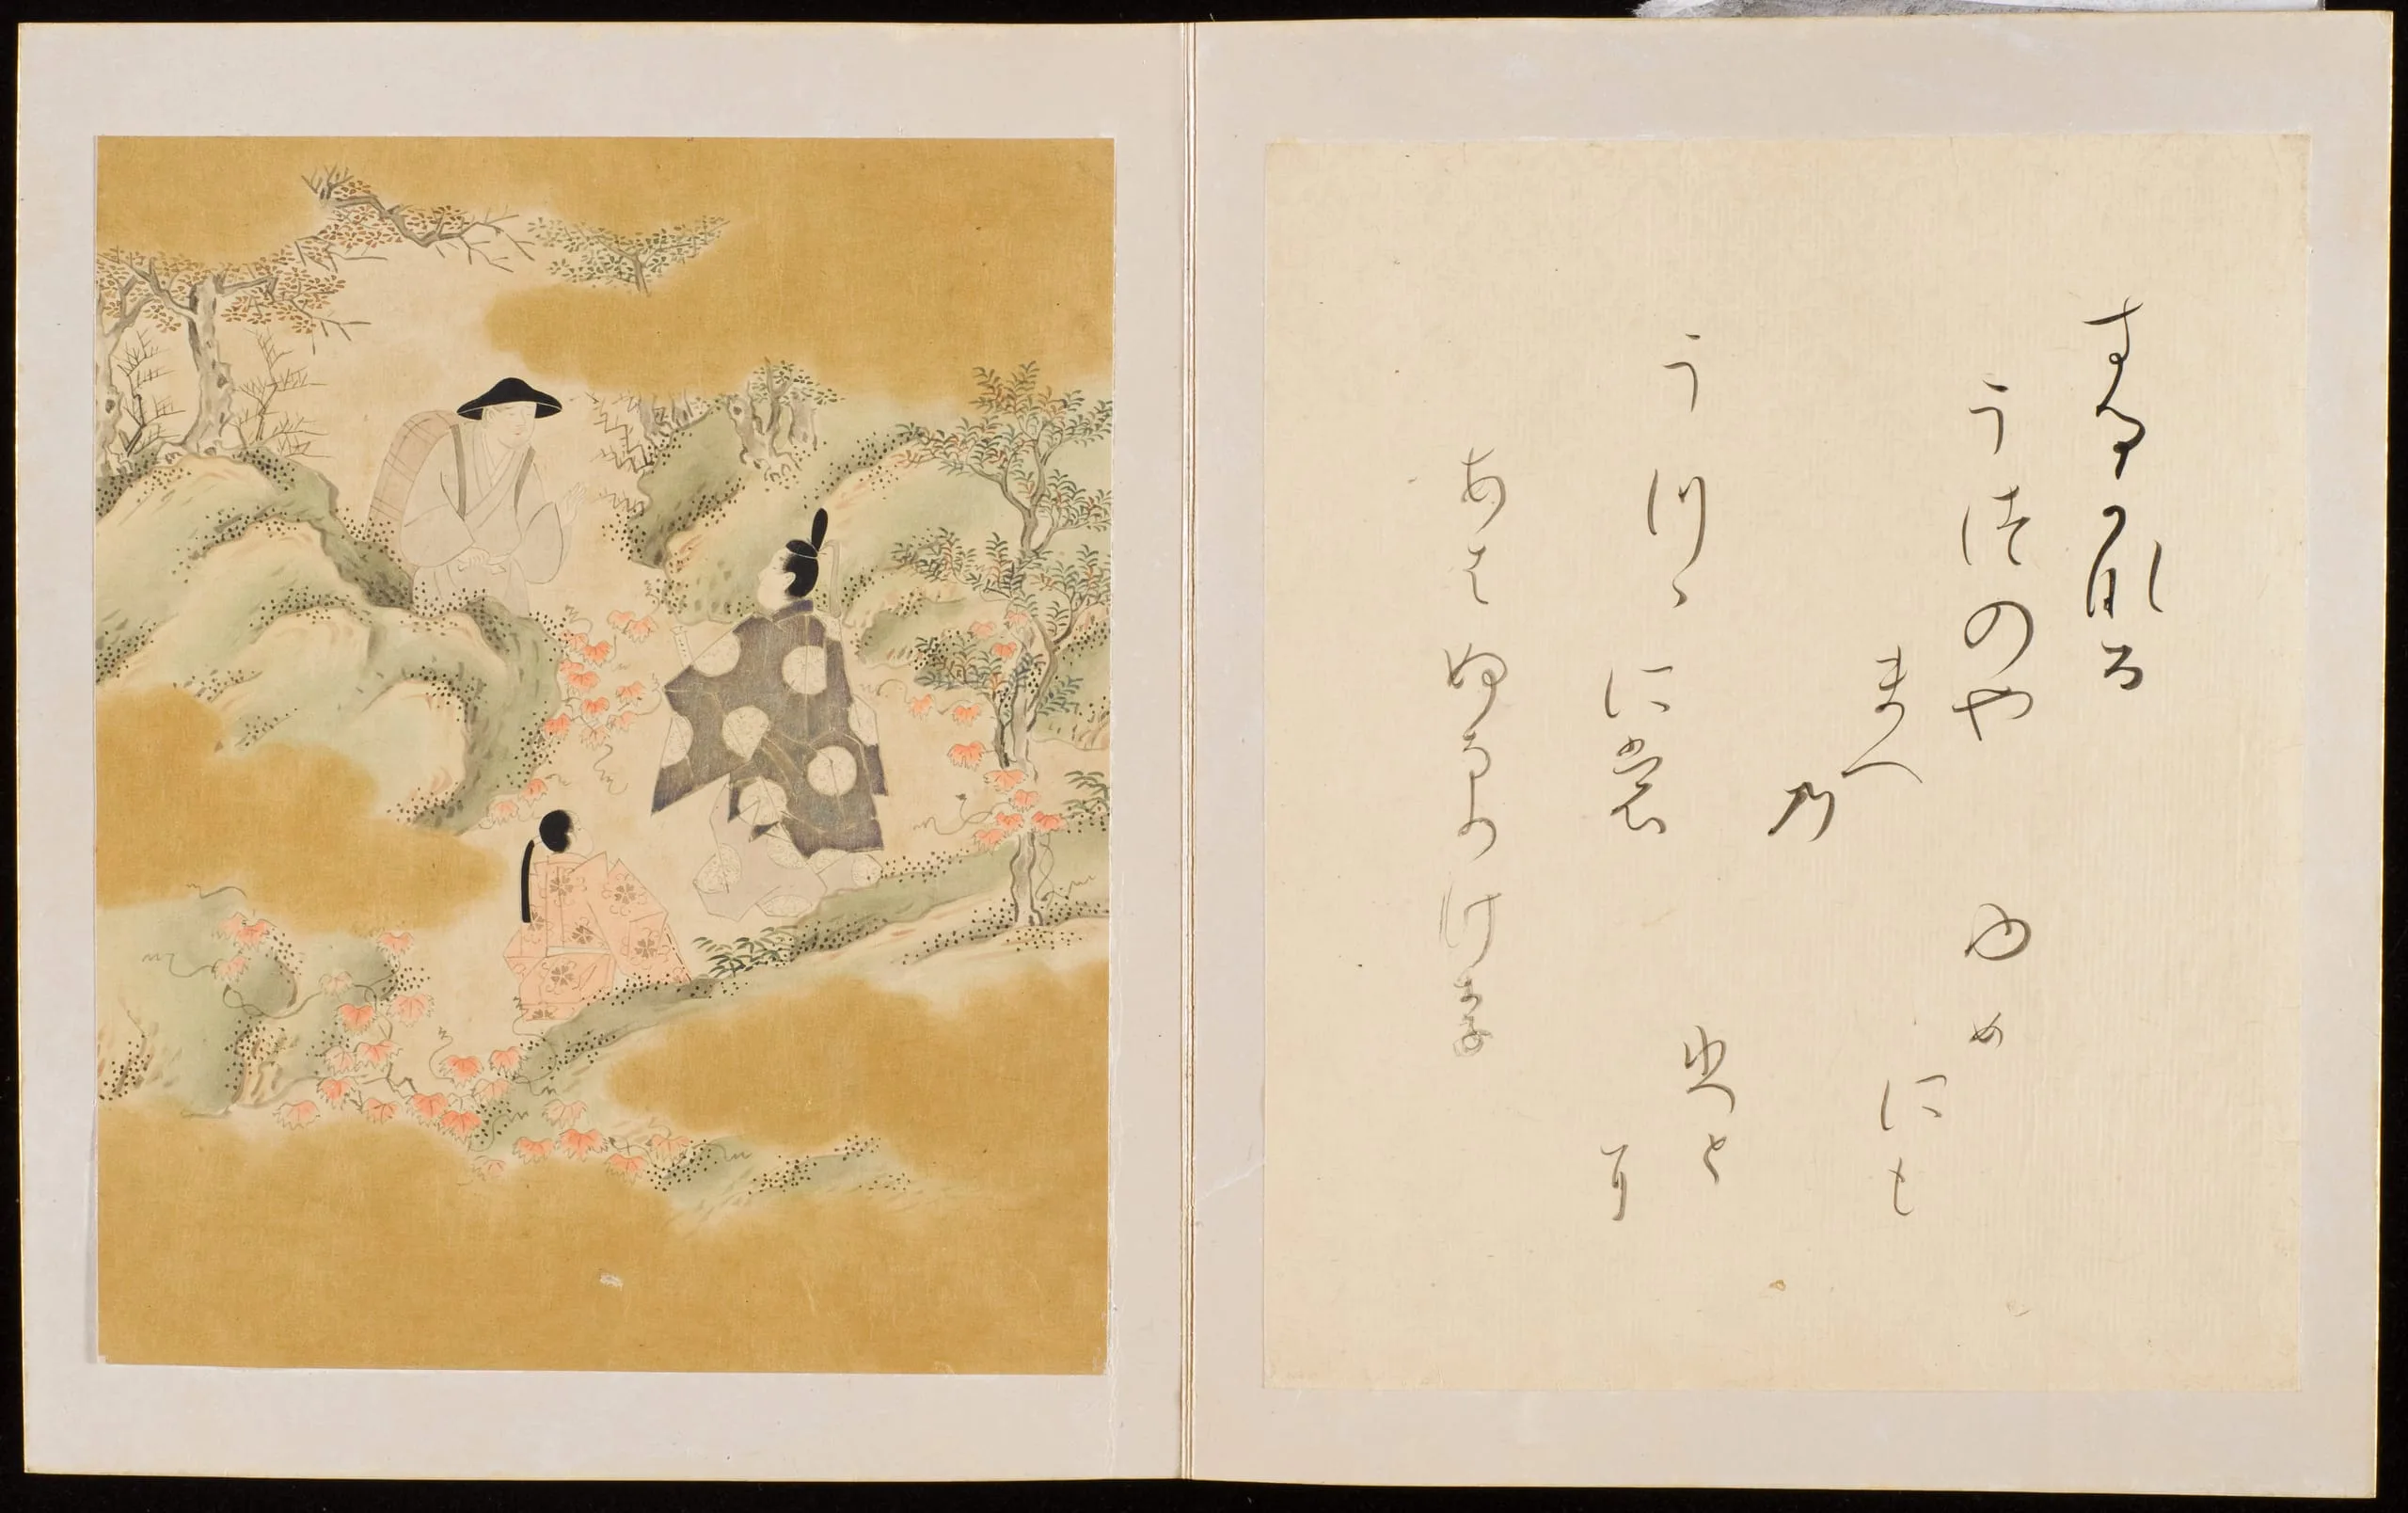 するかなる
うつのや
まへ
乃
うつゝ
に裳
ゆめ
にも
ひと
耳
あはぬなりけり